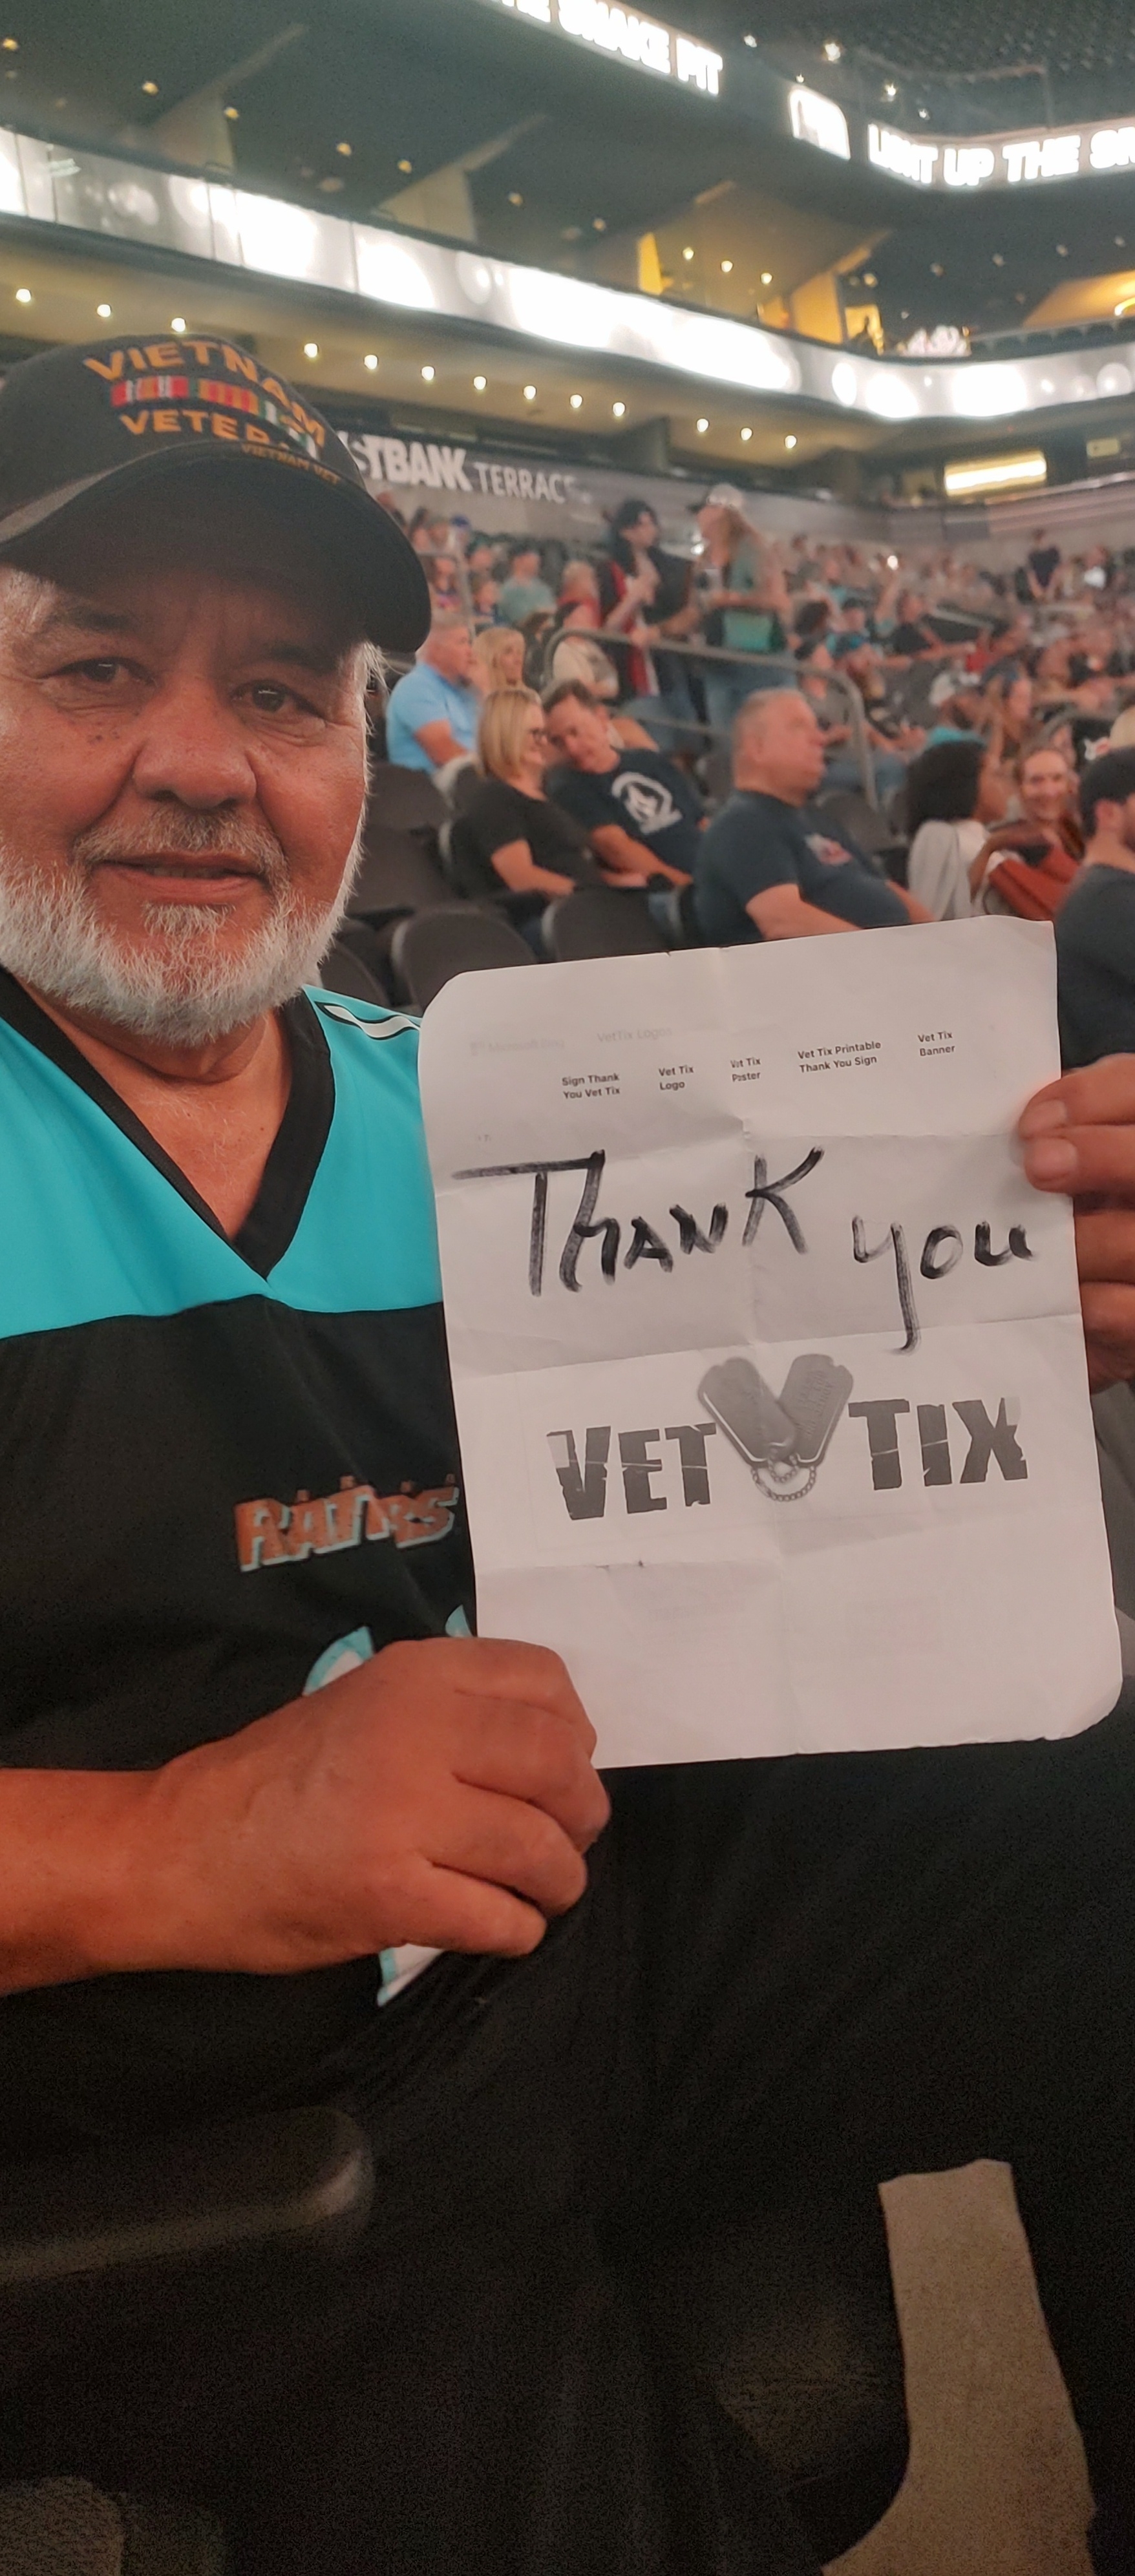 THE SNAKE PIT
LIGHT UP THE SN
VIETNAM
VETERAN
VIETNAM VET
STBANK TERRACE
VetTix Logo
Sign Thank
You Vet Tix
Vet Tix
Logo
Vet Tix
Poster
Vet Tix Printable
Thank You Sign
Vet Tix
Banner
THANK you
VET TIX
RATTLERS